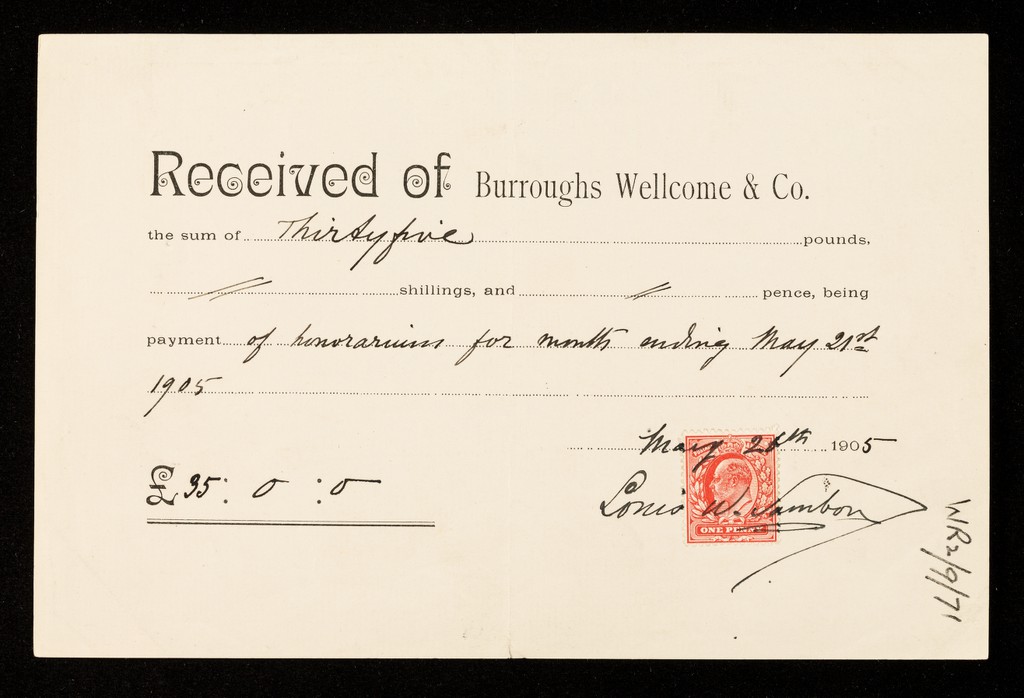 Received of Burroughs Wellcome & Co.
the sum of Thirtyfive pounds,
shillings, and pence, being
payment of honorariums for month ending May 21st
1905
May 26th 1905
£ 35 : 0 : 0
Louis W. Sambon
ONE PENNY
WR2/9/71